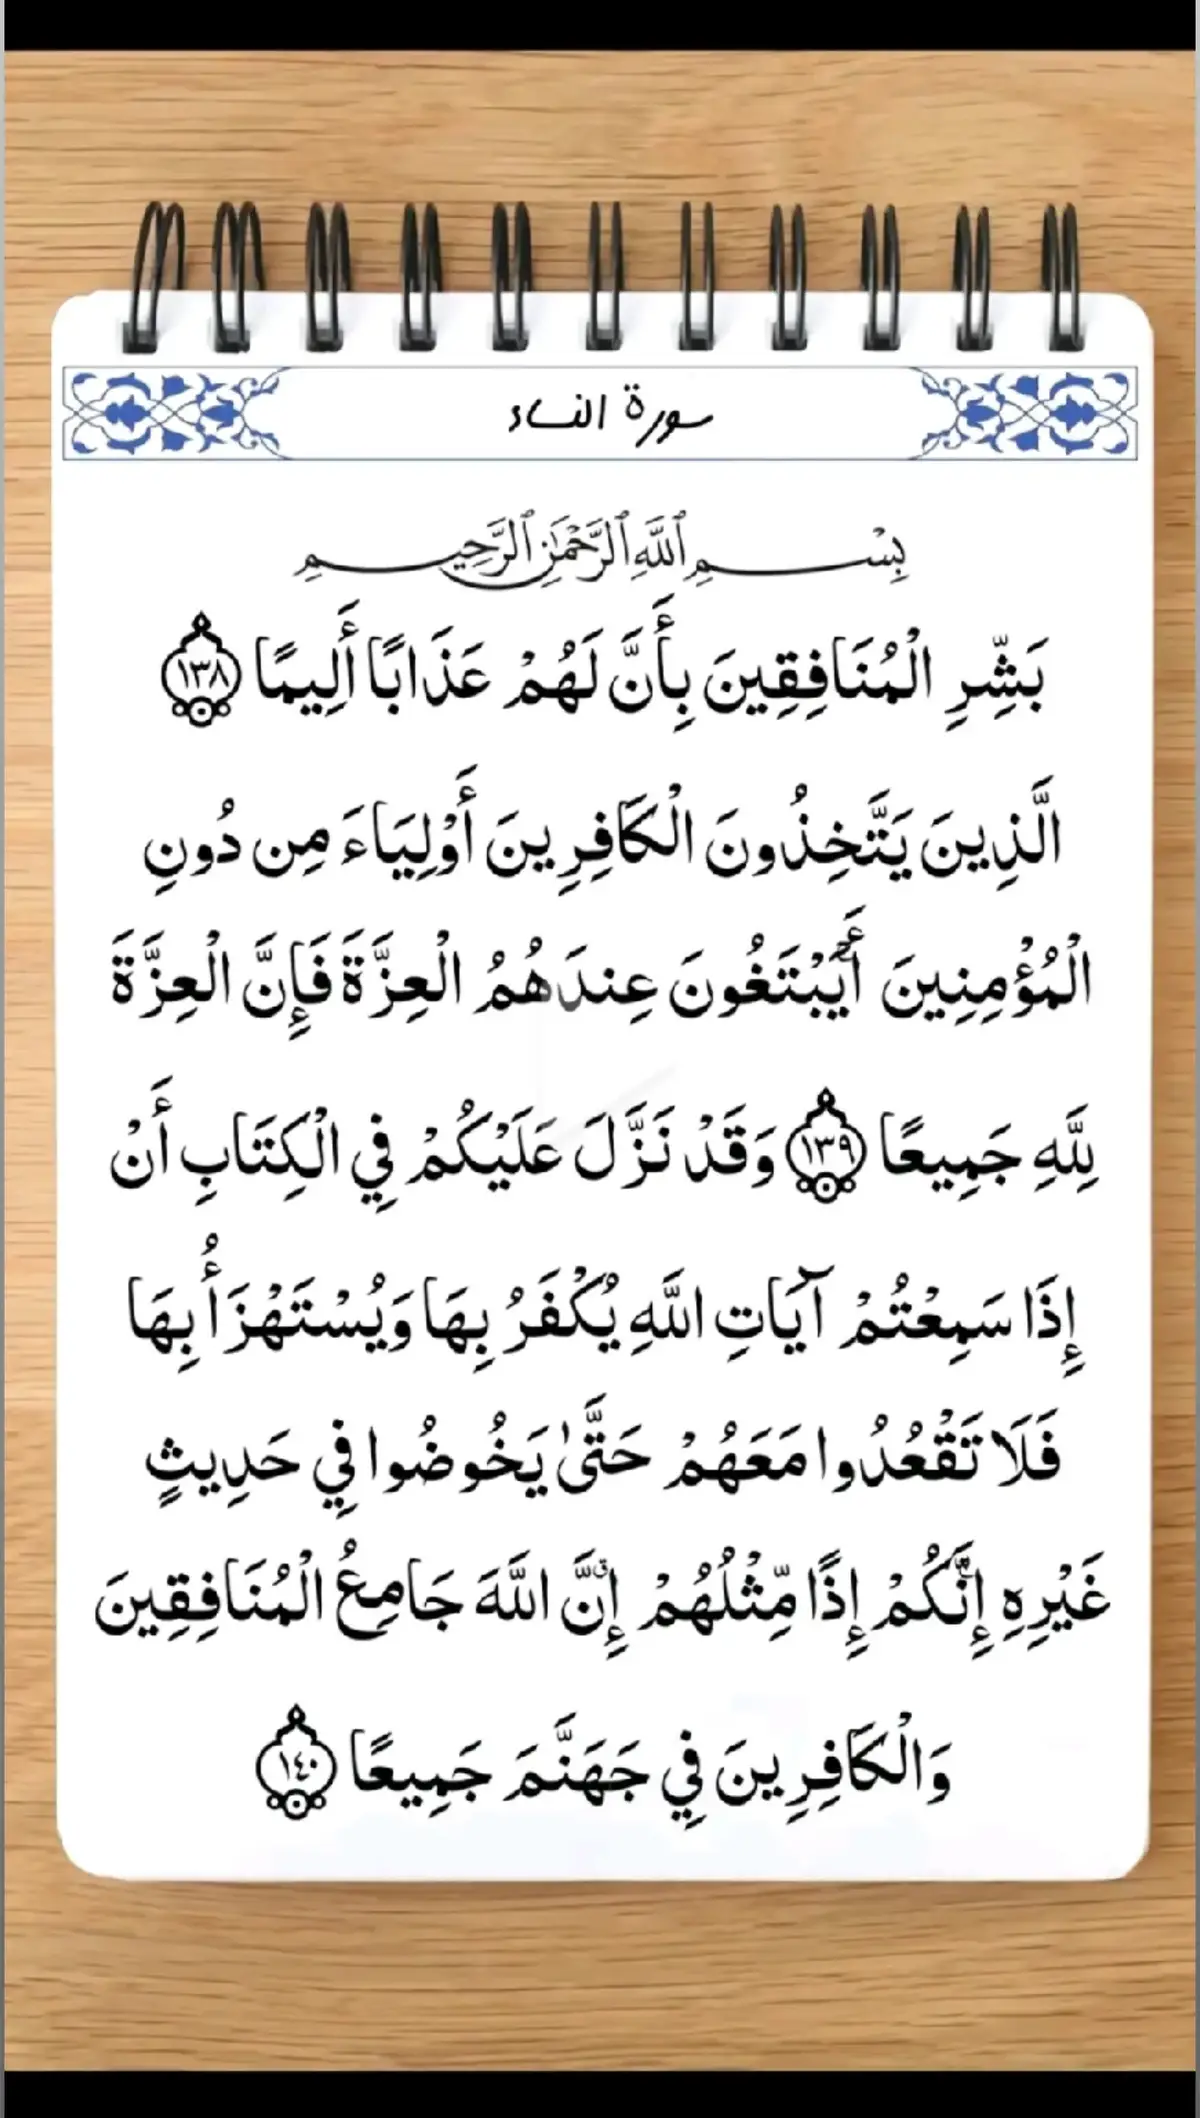 سورة النساء
بِسْمِ ٱللَّهِ ٱلرَّحْمَٰنِ ٱلرَّحِيمِ
بَشِّرِ الْمُنَافِقِينَ بِأَنَّ لَهُمْ عَذَابًا أَلِيمًا ١٣٨
الَّذِينَ يَتَّخِذُونَ الْكَافِرِينَ أَوْلِيَاءَ مِن دُونِ
الْمُؤْمِنِينَ أَيَبْتَغُونَ عِندَهُمُ الْعِزَّةَ فَإِنَّ الْعِزَّةَ
لِلَّهِ جَمِيعًا ١٣٩ وَقَدْ نَزَّلَ عَلَيْكُمْ فِي الْكِتَابِ أَنْ
إِذَا سَمِعْتُمْ آيَاتِ اللَّهِ يُكْفَرُ بِهَا وَيُسْتَهْزَأُ بِهَا
فَلَا تَقْعُدُوا مَعَهُمْ حَتَّىٰ يَخُوضُوا فِي حَدِيثٍ
غَيْرِهِ إِنَّكُمْ إِذًا مِّثْلُهُمْ إِنَّ اللَّهَ جَامِعُ الْمُنَافِقِينَ
وَالْكَافِرِينَ فِي جَهَنَّمَ جَمِيعًا ١٤٠